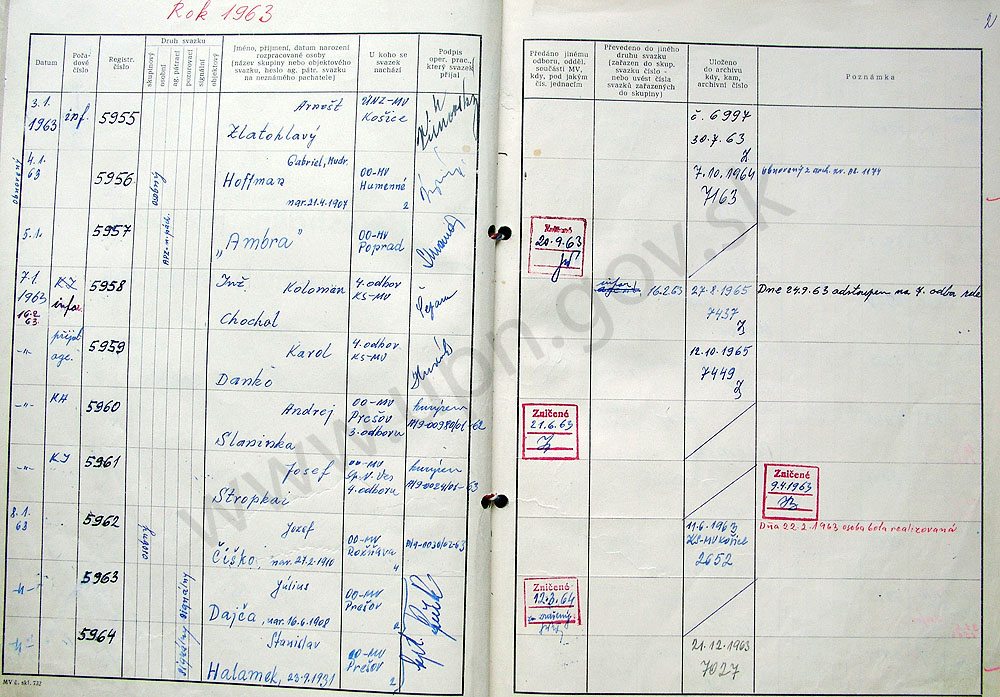 Rok 1963
Datum
Pořadové číslo
Registr. číslo
Druh svazku
skupinový
osobní
ag. pátrací
pozorovací
signální
objektový
Jméno, příjmení, datum narození
rozpracované osoby
(název skupiny nebo objektového
svazku, heslo ag. pátr. svazku
na neznámého pachatele)
U koho se
svazek
nachází
Podpis
oper. prac.,
který svazek
přijal
Předáno jinému
odboru, odděl.,
součásti MV,
kdy, pod jakým
čís. jednacím
Převedeno do jiného
druhu svazku
(zařazen do skup.
svazku číslo -
nebo uvést čísla
svazků zařazených
do skupiny)
Uloženo
do archivu
kdy, kam,
archivní číslo
Poznámka
3.1. 1963 inf. 5955 Arnošt ÚNZ-MV
Zlatohlavý Košice
č. 6997
30.7.63
Obnovený
4.1. 63 5956 osobný Gabriel, Mudr. OO-MV
Hoffman Humenné
nar. 21.4.1907 2
7.10.1964 Obnovený z arch. 1174
7163
5.1. 5957 „Ambra" OO-MV
Poprad
20.9.63
7.1. 1963 KI 5958 Inž. Koloman 4. odbor
16.2. 63. infor. Chochol KS-MV
16.2.63 27.8.1965 Dne 24.9.63 odstoupen na 7. odbo
7437
-"- age. 5959 Karol 4. odbor
Danko KS-MV
12.10.1965
7449
-"- KA 5960 Andrej OO-MV kurýrem
Slaninka Prešov
3. odboru
Zničené
21.6.63
-"- KI 5961 Jozef OO-MV kurýrem
Stropkai Sp. N. Ves
4. odboru
Zničené
9.4.1963
8.1. 63 5962 Jozef OO-MV
Číško, nar. 27.2.1910 Rožňava
11.6.1963 Dňa 22.2.1963 osoba bola realizovaná
KS-MV Košice
2652
-"- 5963 signálny Július OO-MV
Dajča, nar. 16.6.1908 Prešov
Zničené
12.3.64
-"- 5964 signálny Stanislav OO-MV
Halamek, 23.9.1931 Prešov
2
21.12.1963
7027
MV č. skl. 732
www.upn.gov.sk